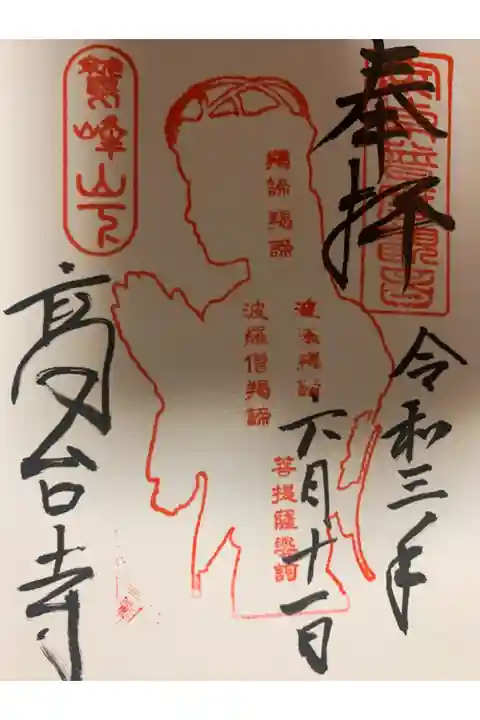 奉拝
令和三年
六月十一日
羯諦羯諦
波羅羯諦
波羅僧羯諦
菩提薩婆訶
鷲峰山下
高台寺